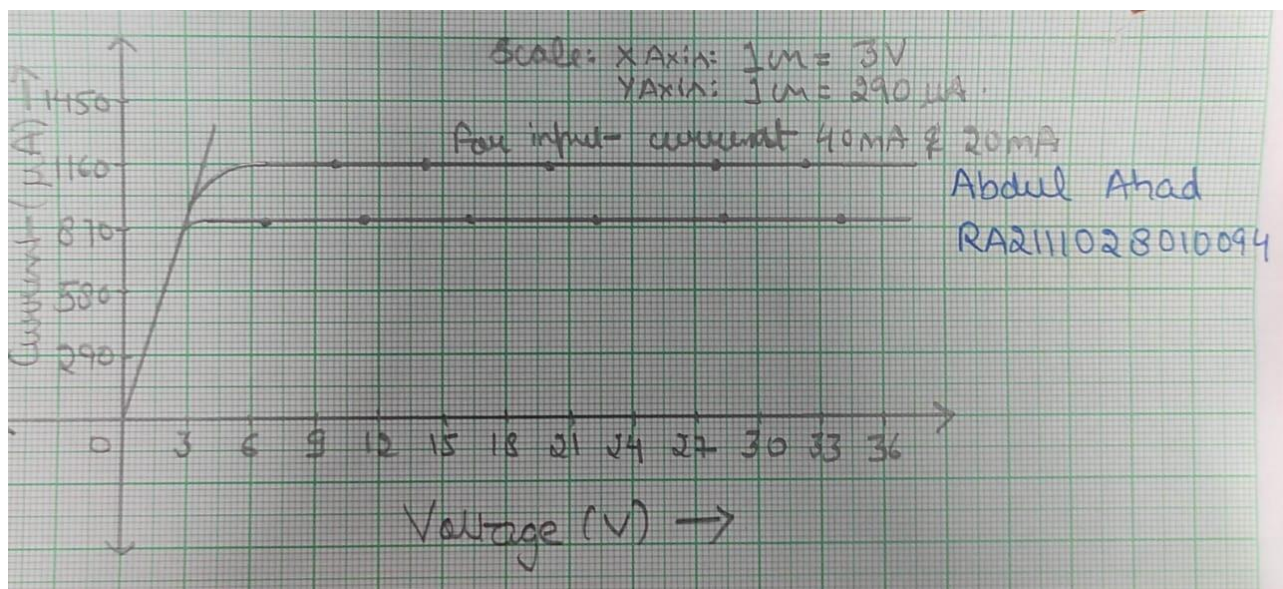 Scale: X Axis: 1cm = 3V
Y Axis: 1cm = 290 μA.
For input current 40mA & 20mA
Abdul Ahad
RA2111028010094
Current (μA) →
1450
1160
870
580
290
0 3 6 9 12 15 18 21 24 27 30 33 36
Voltage (V) →